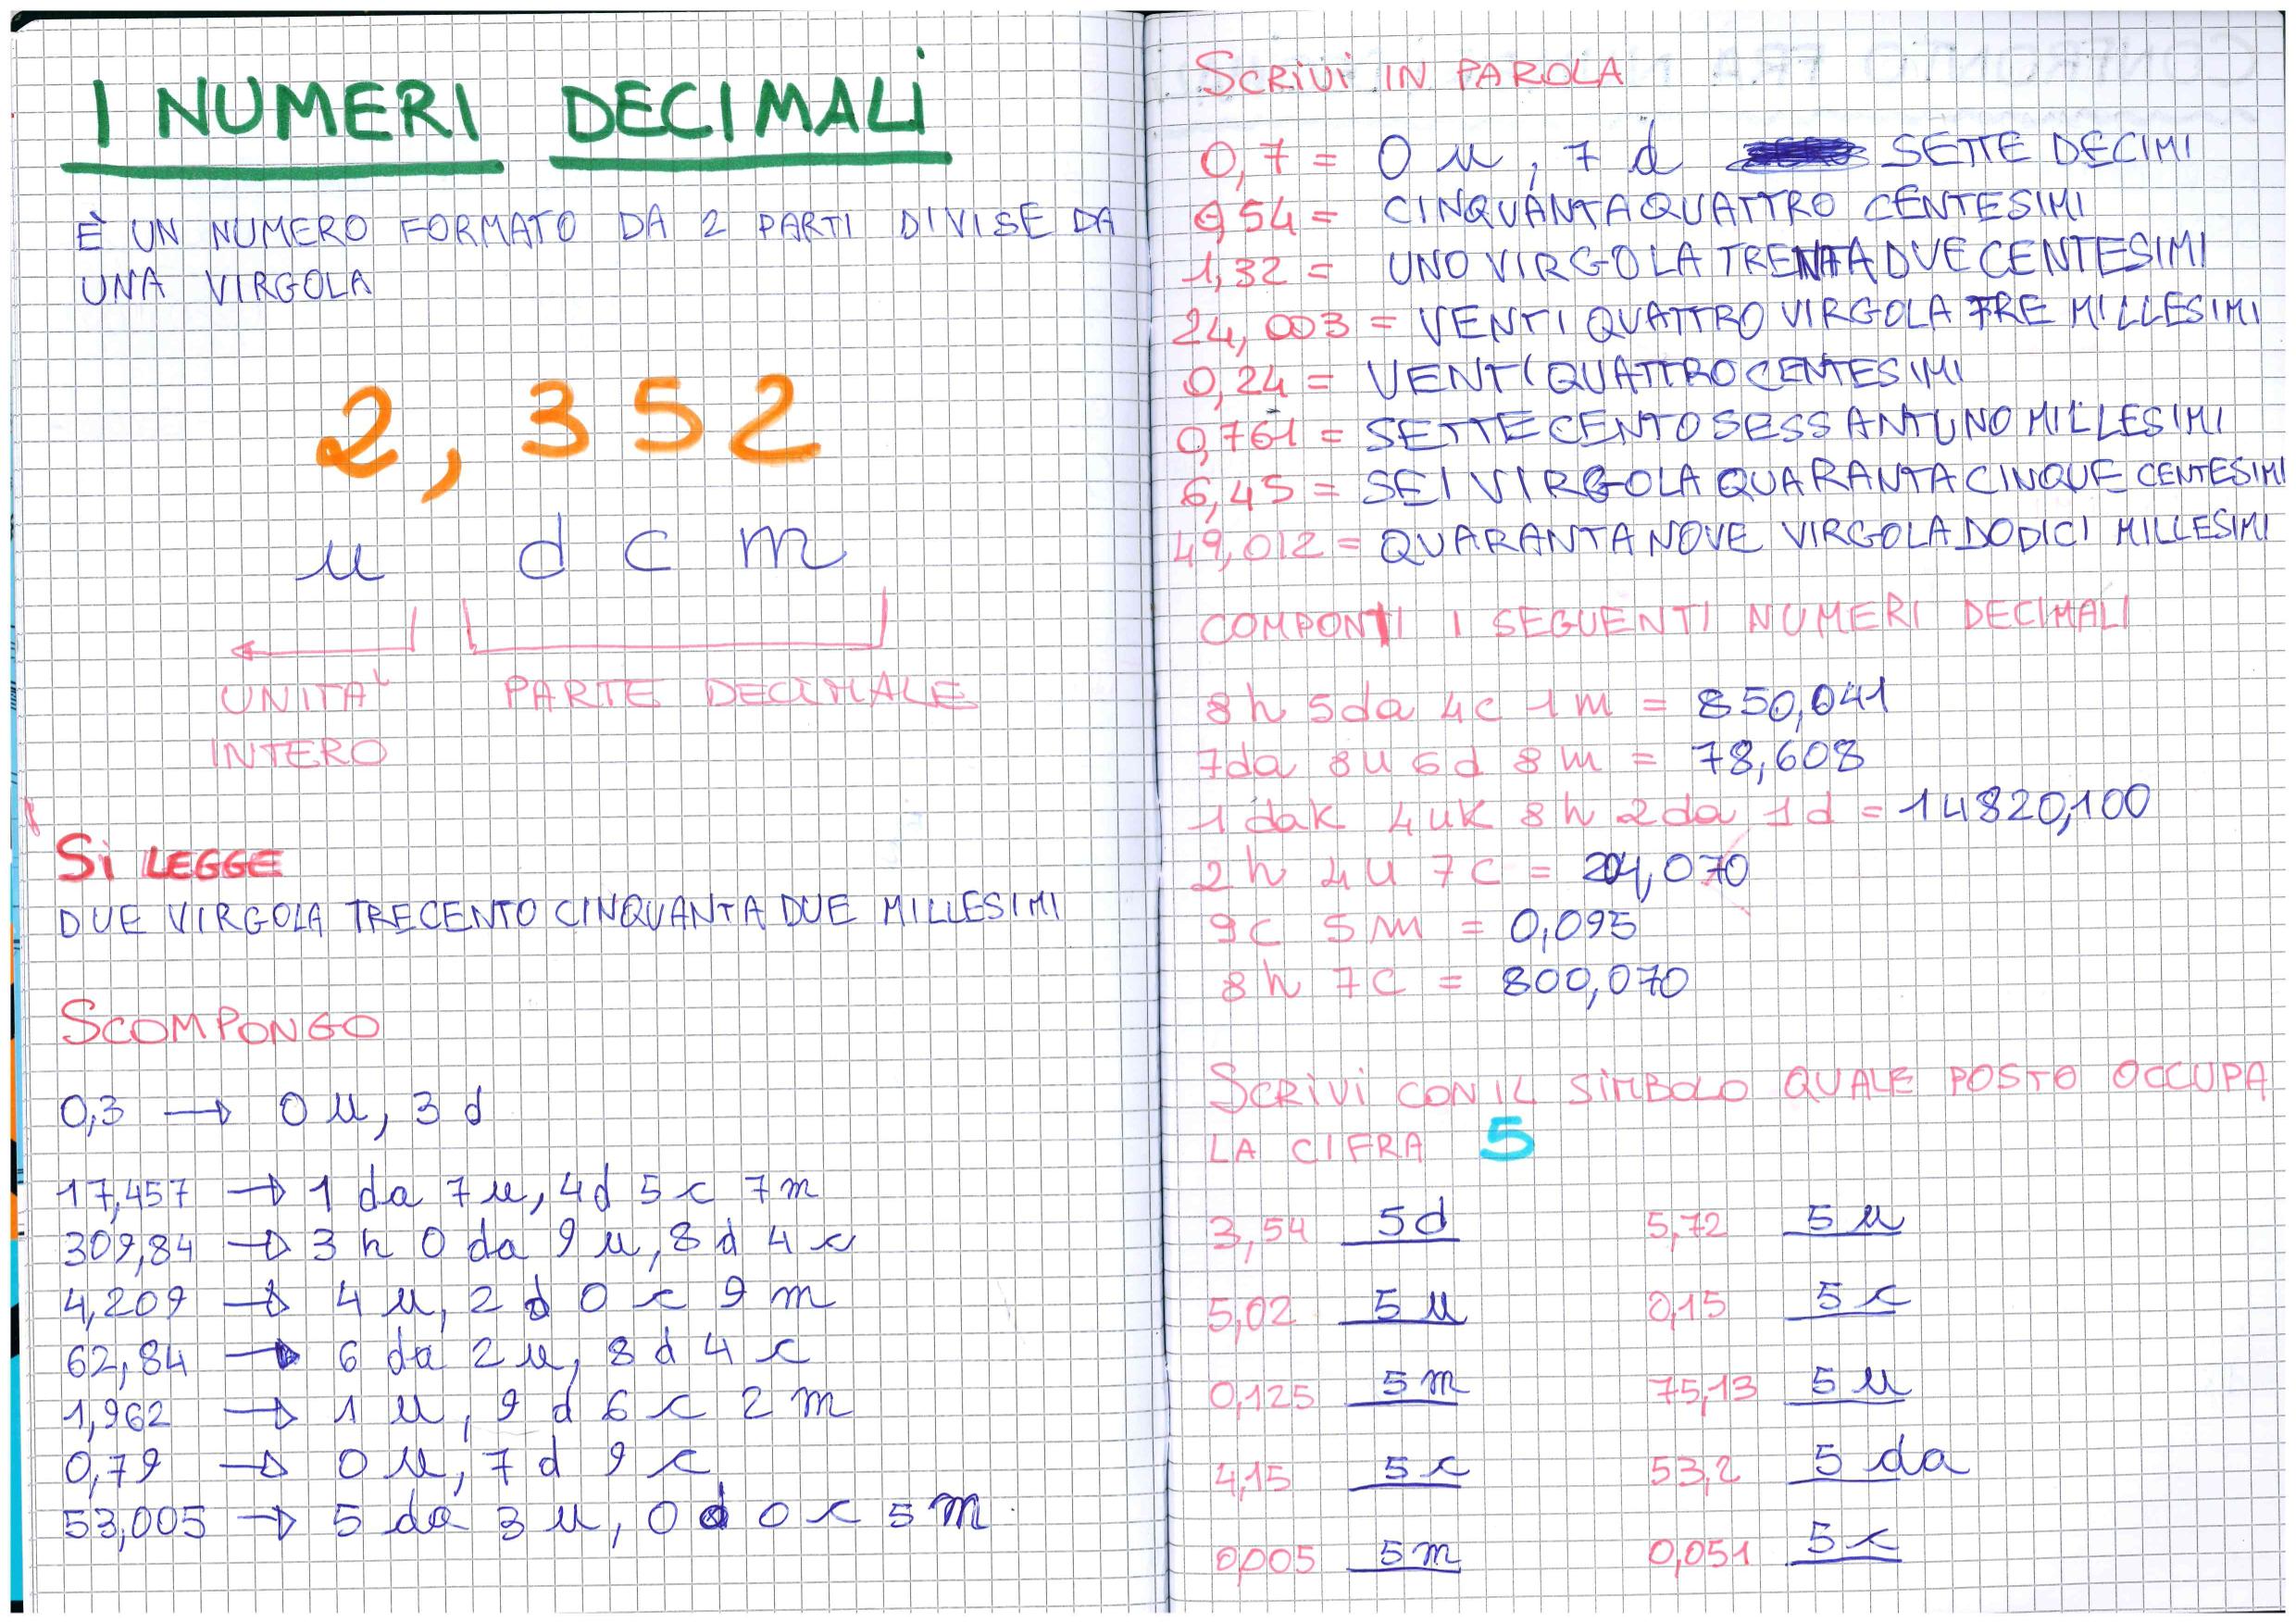 I NUMERI DECIMALI
È UN NUMERO FORMATO DA 2 PARTI DIVISE DA
UNA VIRGOLA
2,352
u d c m
UNITA' PARTE DECIMALE
INTERO
Si LEGGE
DUE VIRGOLA TRECENTO CINQUANTA DUE MILLESIMI
SCOMPONGO
0,3 → 0 u, 3 d
17,457 → 1 da 7 u, 4d 5 c 7 m
309,84 → 3 h 0 da 9 u, 8 d 4 c
4,209 → 4 u, 2 d 0 c 9 m
62,84 → 6 da 2 u, 8 d 4 c
1,962 → 1 u, 9 d 6 c 2 m
0,79 → 0 u, 7 d 9 c
53,005 → 5 da 3 u, 0 d 0 c 5 m
SCRIVI IN PAROLA
0,7 = 0 u, 7 d SETTE DECIMI
0,54 = CINQUANTAQUATTRO CENTESIMI
1,32 = UNO VIRGOLA TRENTADUE CENTESIMI
24,003 = VENTIQUATTRO VIRGOLA TRE MILLESIMI
0,24 = VENTIQUATTRO CENTESIMI
0,761 = SETTECENTOSESSANTUNO MILLESIMI
6,45 = SEI VIRGOLA QUARANTACINQUE CENTESIMI
49,012 = QUARANTANOVE VIRGOLA DODICI MILLESIMI
COMPONTI I SEGUENTI NUMERI DECIMALI
8h 5da 4c 1m = 850,041
7da 8u 6d 8m = 78,608
1dak 4uk 8h 2da 1d = 14820,100
2h 4u 7c = 204,070
9c 5m = 0,095
8h 7c = 800,070
SCRIVI CON IL SIMBOLO QUALE POSTO OCCUPA
LA CIFRA 5
3,54 5d 5,72 5 u
5,02 5 u 0,15 5 c
0,125 5 m 75,13 5 u
4,15 5 c 53,2 5 da
0,005 5m 0,051 5 c